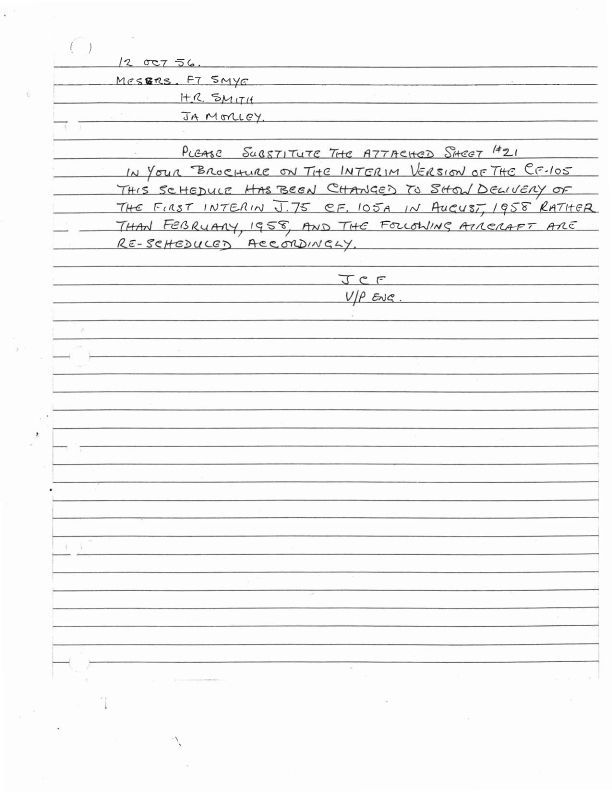 12 OCT 56.
MESSRS. FT SMYE
H.R. SMITH
JA MORLEY.
PLEASE SUBSTITUTE THE ATTACHED SHEET #21
IN YOUR BROCHURE ON THE INTERIM VERSION OF THE CF-105
THIS SCHEDULE HAS BEEN CHANGED TO SHOW DELIVERY OF
THE FIRST INTERIM J.75 CF. 105A IN AUGUST, 1958 RATHER
THAN FEBRUARY, 1958, AND THE FOLLOWING AIRCRAFT ARE
RE-SCHEDULED ACCORDINGLY.
J C F
V/P ENG.